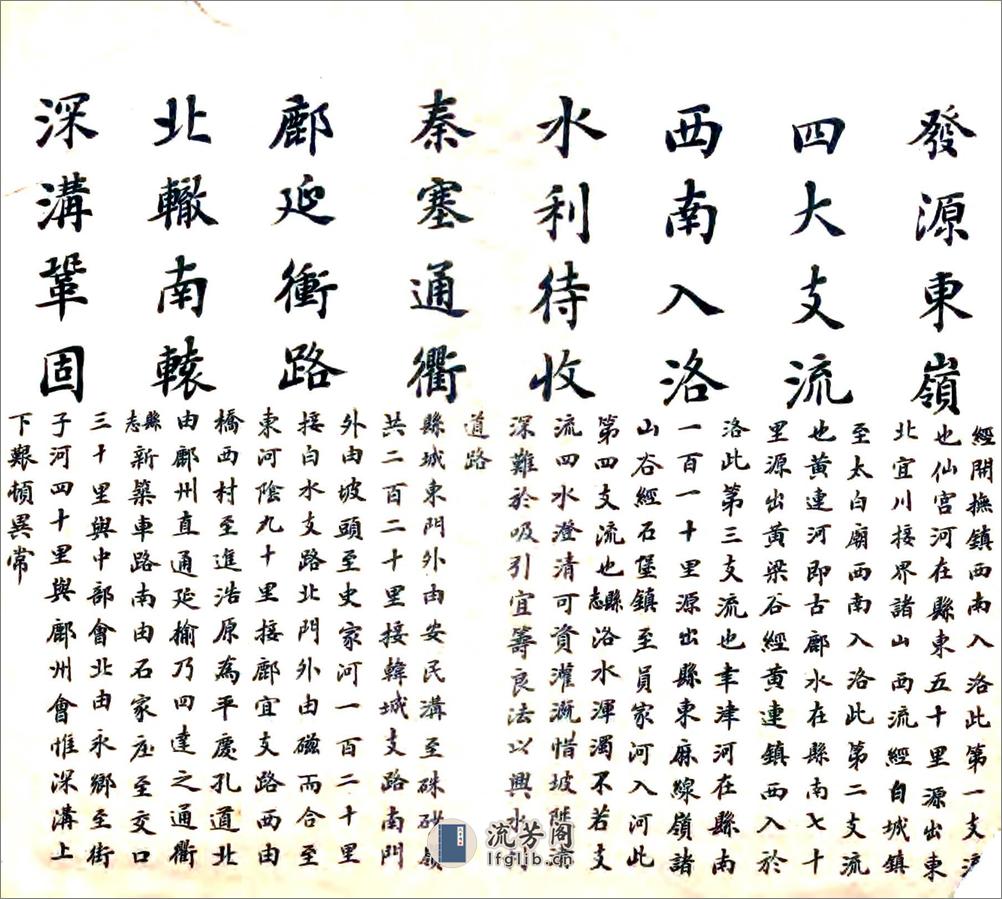 發源東嶺
四大支流
西南入洛
水利待收
秦塞通衢
鄜延衝路
北轍南轅
深溝鞏固
經開撫鎮西南入洛此第一支流
也仙宮河在縣東五十里源出東
北宜川接界諸山西流經白城鎮
至太白廟西南入洛此第二支流
也黃連河即古鄜水在縣南七十
里源出黃梁谷經黃連鎮西入於
洛此第三支流也聿津河在縣南
一百一十里源出縣東麻線嶺諸
山谷經石堡鎮至員家河入河此
第四支流也縣志洛水渾濁不若支
流四水澄清可資灌溉惜坡陡溝
深難於吸引宜籌良法以興水利
道路
縣城東門外由安民溝至硃砂嶺
共二百二十里接韓城支路南門
外由坡頭至史家河一百二十里
接白水支路北門外由磁而合至
東河陰九十里接鄜宜支路西由
橋西村至進浩原為平慶孔道北
由鄜州直通延榆乃四達之通衢
縣志新築車路南由石家庄至交口
三十里與中部會北由永鄉至街
子河四十里與鄜州會惟深溝上
下艱頓異常
流芳阁